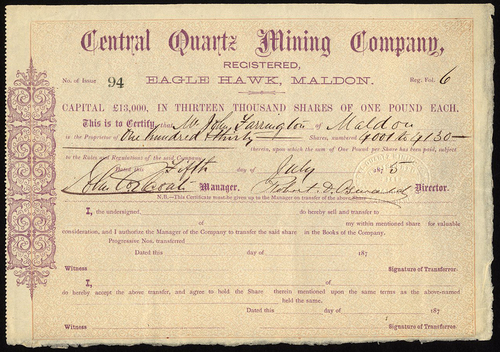 Central Quartz Mining Company,
REGISTERED,
No. of Issue 94 EAGLE HAWK, MALDON. Reg. Fol. 6
CAPITAL £13,000, IN THIRTEEN THOUSAND SHARES OF ONE POUND EACH.
This is to Certify, that Mr John Farrington of Maldon
is the Proprietor of One hundred & thirty Shares, numbered 9001 to 9130
therein, upon which the sum of One Pound per Share has been paid, subject
to the Rules and Regulations of the said Company.
Dated this Fifth day of July 1875
Manager. Robert D. Director.
N.B.—This Certificate must be given up to the Manager on transfer of the above Share
I, the undersigned, do hereby sell and transfer to
of my within mentioned share for valuable
consideration, and I authorize the Manager of the Company to transfer the said share in the Books of the Company.
Progressive Nos. transferred
Dated this day of 187
Witness Signature of Transferror.
I, of
do hereby accept the above transfer, and agree to hold the Share therein mentioned upon the same terms as the above-named
held the same.
Dated this day of 187
Witness Signature of Transferee.